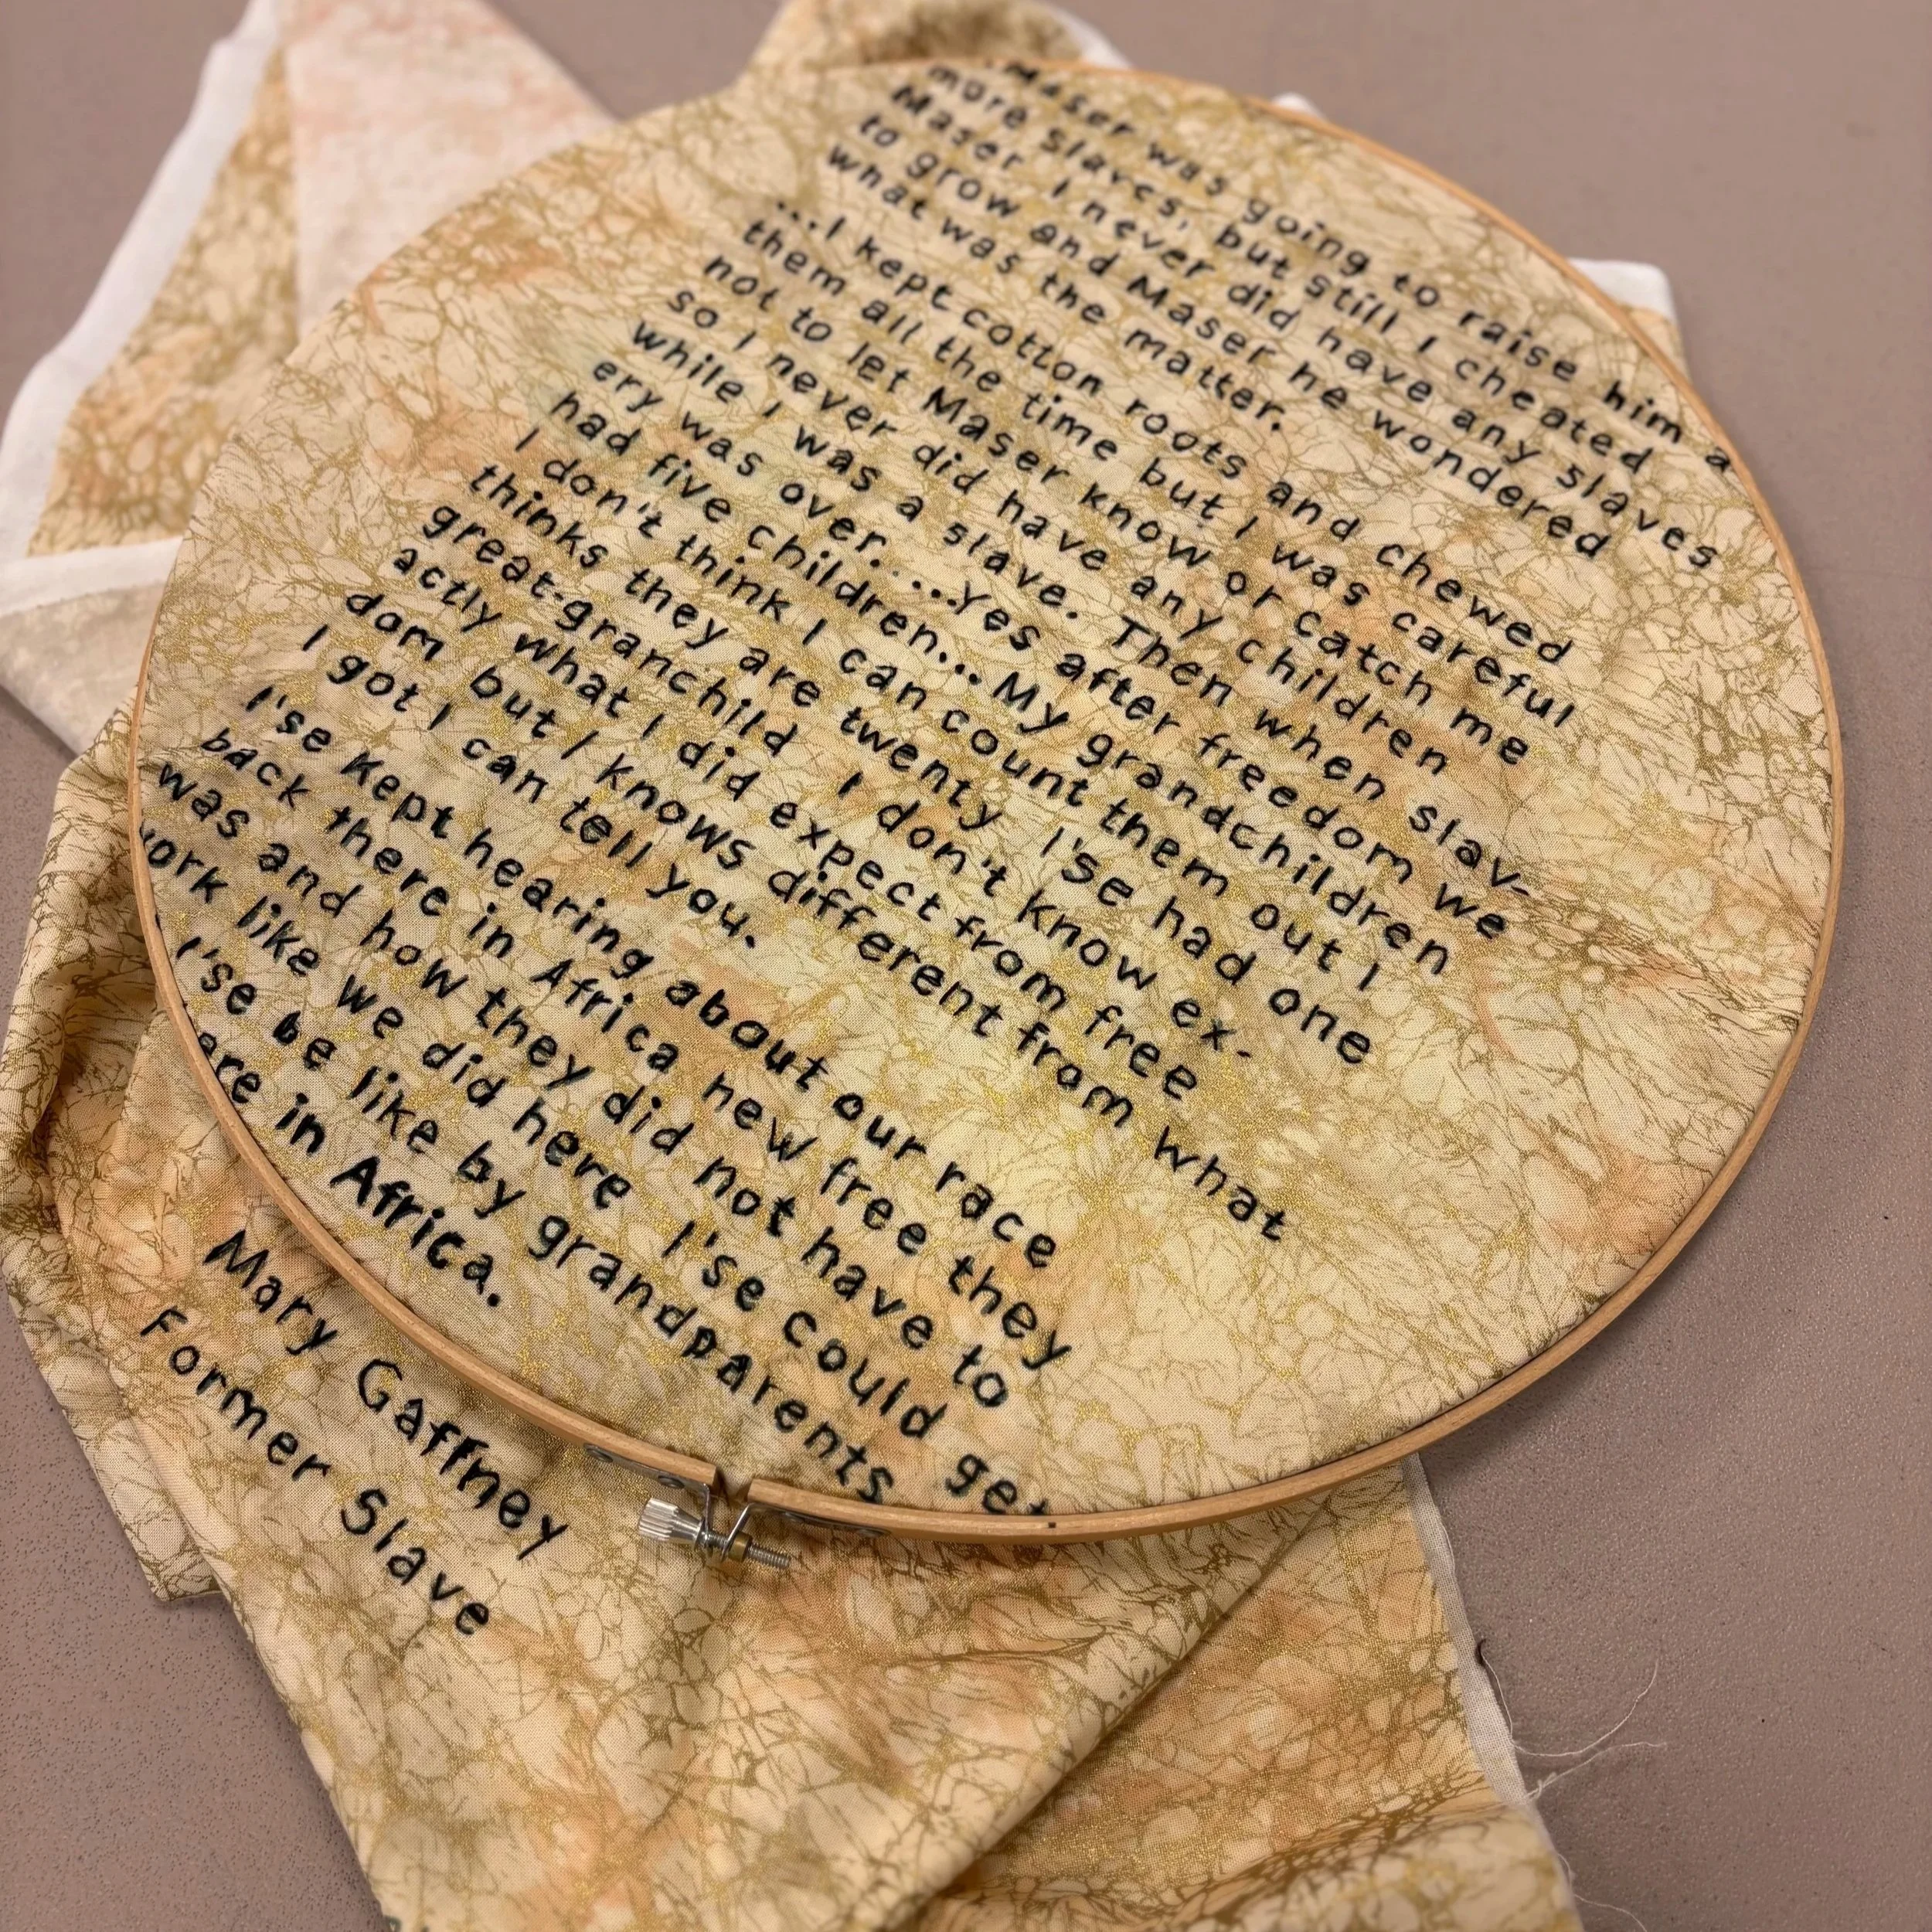 Maser was going to raise him a
more slaves, but still I cheated
Maser I never did have any slaves
to grow and Maser he wondered
what was the matter.
...I kept cotton roots and chewed
them all the time but I was careful
not to let Maser know or catch me
so I never did have any children
while I was a slave. Then when slav-
ery was over....Yes after freedom we
had five children... My grandchildren
I don't think I can count them out I
thinks they are twenty I'se had one
great-granchild I don't know ex-
actly what I did expect from free
dom but I knows different from what
I got I can tell you.
I'se Kept hearing about our race
back there in Africa new free they
was and how they did not have to
work like we did here I'se could get
I'se be like by grandparents
ere in Africa.
Mary Gaffney
Former Slave